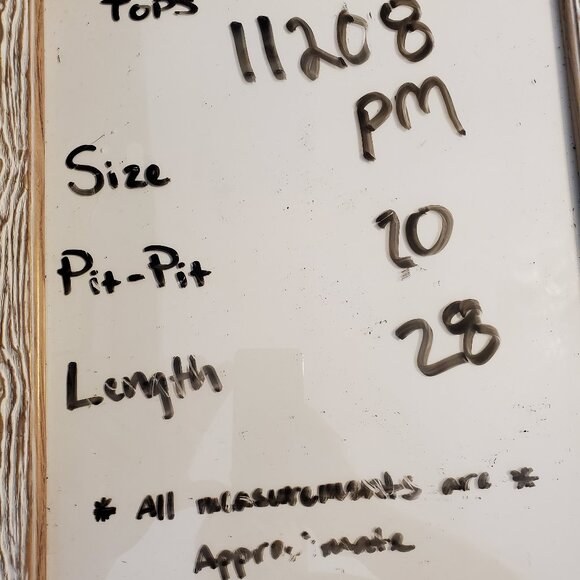 Tops
11208
PM
Size
Pit-Pit 20
Length 28
* All measurements are *
Approximate